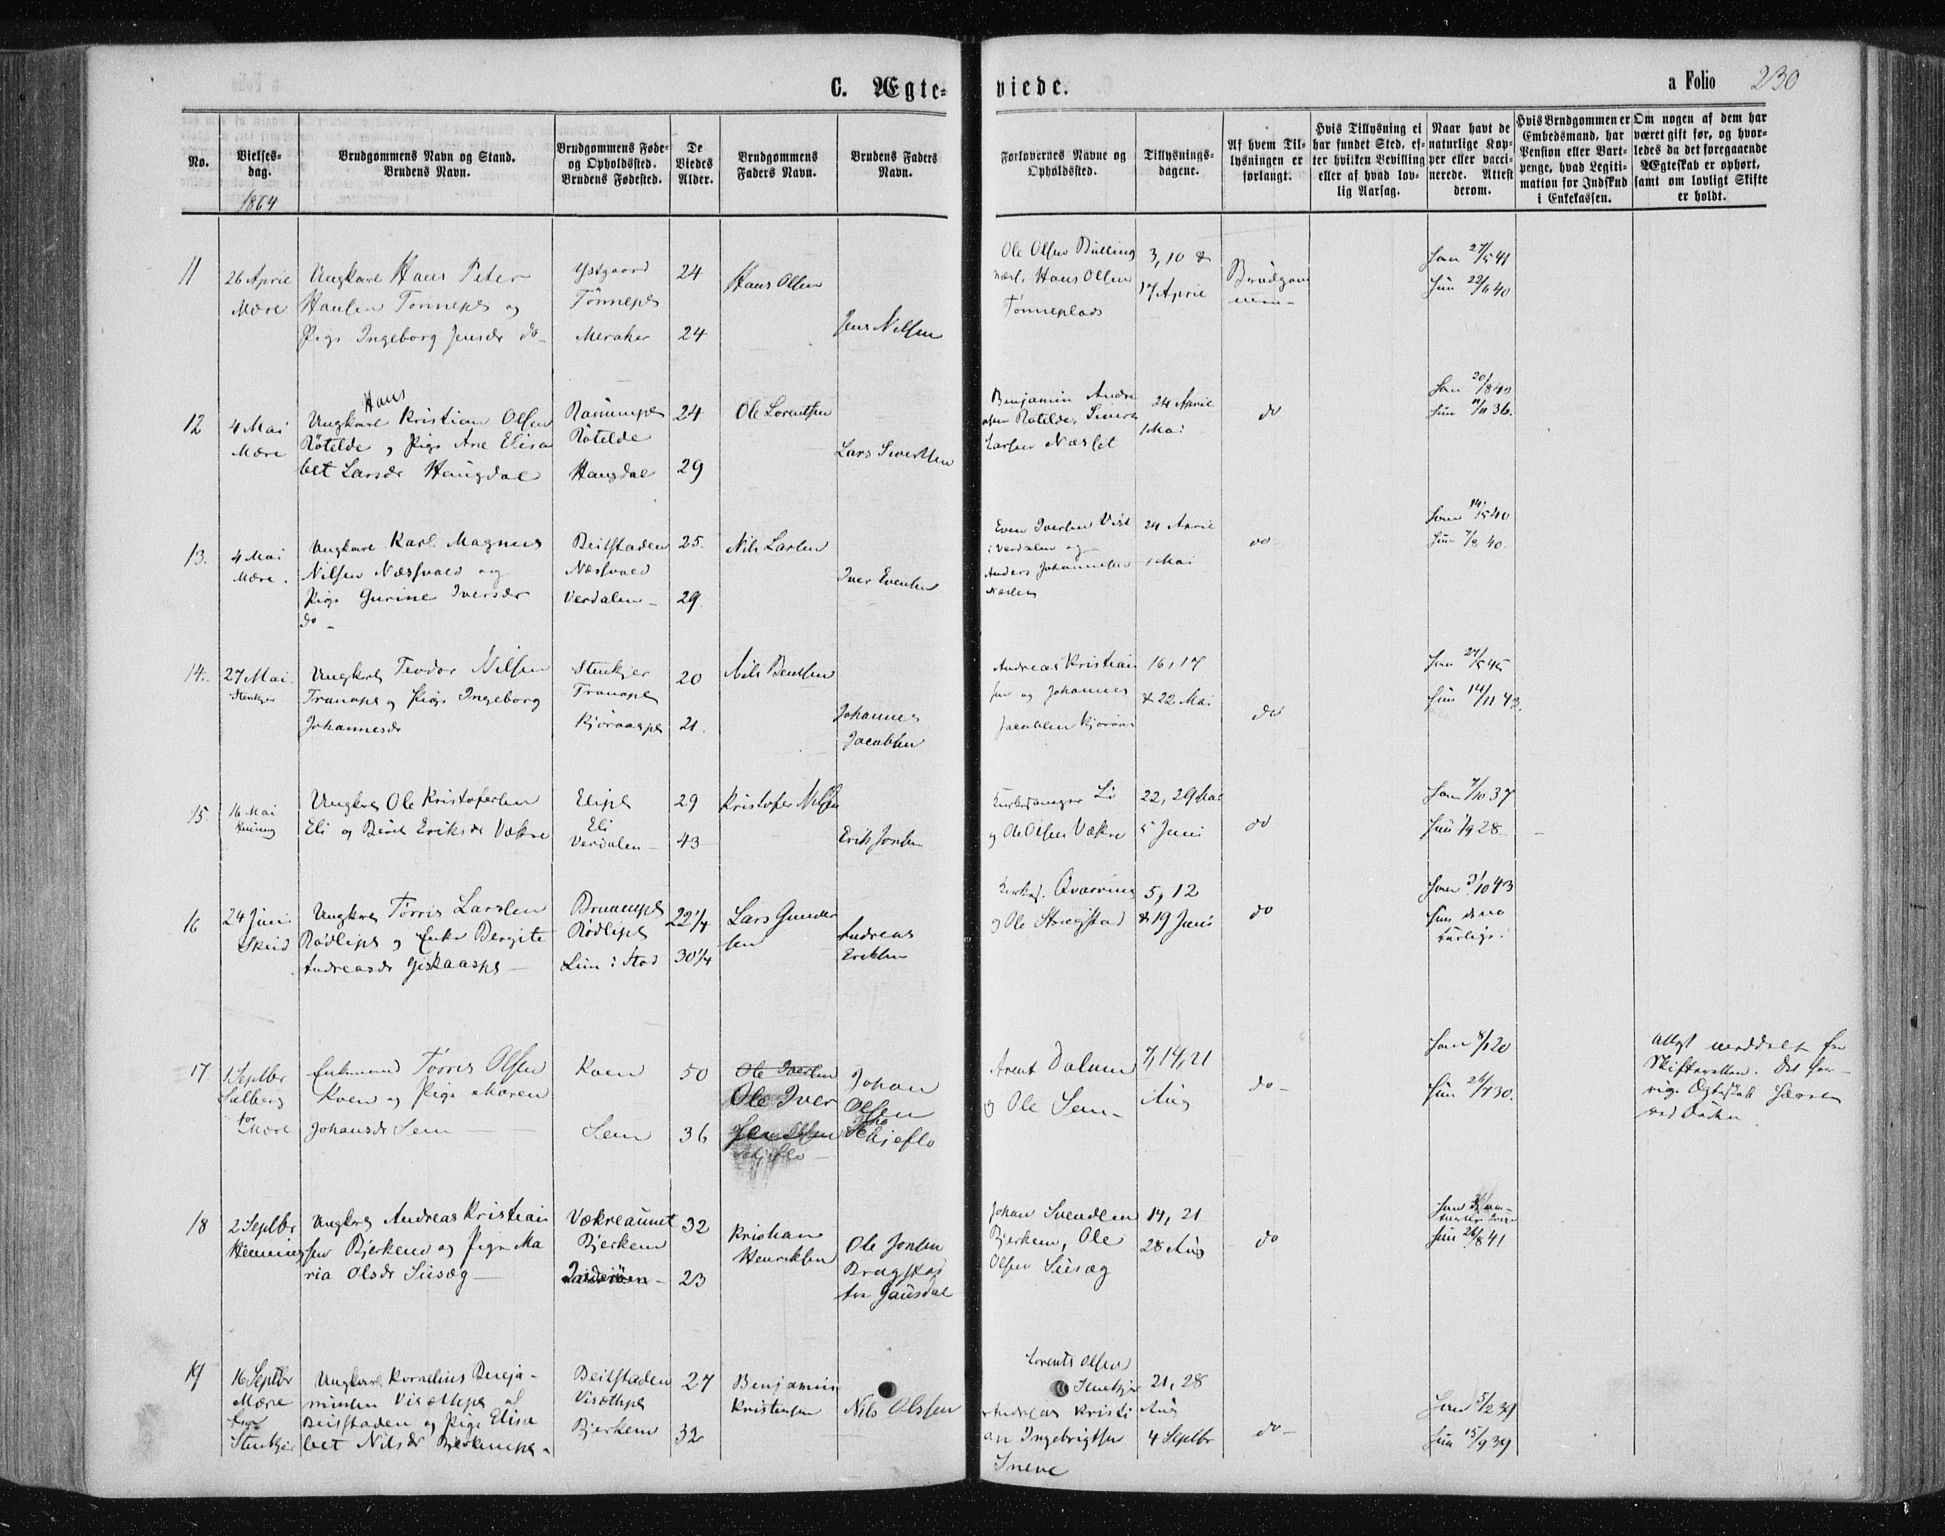 C. Ægte-
viede.
a Folio 230
No.
Vielses-
dag.
1864
Brudgommens Navn og Stand.
Brudens Navn.
Brudgommens Føde-
og Opholdssted.
Brudens Fødested.
De
Viedes
Alder.
Brudgommens
Faders Navn.
Brudens Faders
Navn.
Forlovernes Navne og
Opholdssted.
Tillysnings-
dagene.
Af hvem Til-
lysningen er
forlangt.
Hvis Tillysning ei
har fundet Sted, ef-
ter hvilken Bevilling
eller af hvad lov-
lig Aarsag.
Naar havt de
naturlige Kop-
per eller vacci-
nerede. Attest
derom.
Hvis Brudgommen er
Embedsmand, har
Pension eller Vart-
penge, hvad Legiti-
mation for Indskud
i Enkekassen.
Om nogen af dem har
været gift før, og hvor-
ledes da det foregaaende
Ægteskab er ophørt,
samt om lovligt Skifte
er holdt.
11
26 April
Mære
Ungkarl Hans Peter
Hansen Tønnepl og
Pige Ingeborg Jensdr do
Ystgaard
Tønnepl
Meraker
24
24
Hans Olsen
Jens Nilsen
Ole Olsen Bulling
Hans Olsen
Tønneplads
3, 10 &
17 April
Brudgom
men
27/5 41
22/6 40
12
4 Mai
Mære
Hans
Ungkarl Kristian Olsen
Røtelde, Pige Ane Elisa
bet Larsdr Haugdal
Røtelde
Haugdal
24
29
Ole Lorentsen
Lars Sivertsen
Benjamin Andre
Røtelde, Sivert
Larsen Næslet
24 April
1 Mai
do
20/8 40
11/11 36.
13.
4 Mai
Mære.
Ungkarl Karl Magnus
Nilsen Næssvald og
Pige Gurine Iversdr
do
Beitstaden
Næssvald
Verdalen
25.
29.
Nils Larsen
Iver Evensen
Even Iversen Vist
i Verdalen og
Anders Johannesen
24 April
1 Mai
do
14/5 40
7/8 40.
14.
27 Mai
Stenkjer
Ungkarl Teodor Nilsen
Tranapl og Pige Ingeborg
Johannesdr
Stenkjer
Tranapl
Kjøraaspl
20
21.
Nils Bentsen
Johannes
Jacobsen
Andreas Kristian
sen og Johannes
Jacobsen Kjøraas
16, 17
& 22 Mai
do
27/5 45
14/11 42.
15.
16 Mai
Ungkarl Ole Kristofersen
Eli og Berit Eriksdr Vækre
Elipl
Eli
Verdalen
29
43
Kristofer Nilsen
Erik Jonsen
Kirkesanger Li
og Ole Olsen Vækre
22, 29 Mai
5 Juni
do
7/10 37
1/9 28
16
24 Juni
Ungkarl Tørris Larsen
Rødlipl og Enke Bergite
Andreasdr Giskaaspl
Rødlipl
Lun i Stod
22 1/4
30 1/4
Lars Gunder
sen
Andreas
Eriksen
Kirkes. Qvarving
og Ole Strugstad
5, 12
& 19 Juni
do
3/10 43
17
1 Septbr
Salberg
for
Mære
Enkemand Tørris Olsen
Kven og Pige Maren
Johansdr Sem
Kven
Sem
50
36
Ole Iversen
Ole Iver
Johan
Olsen
Skjeflo
Arent Dalum
og Ole Sem
7, 14, 21
Aug
do
8/1 20
26/7 30.
Attest meddelt fra
Skifteretten. Det for-
rige Ægteskab hævet
ved Døden
18
2 Septbr
Henning
Ungkarl Andreas Kristian
sen Bjerkem og Pige Ma
ria Olsdr Susæg
Vækreaunet
Bjerkem
Inderøen
32
23
Kristian
Henriksen
Ole Jonsen
Brugskas
fra Gausdal
Johan Svendsen
Bjerkem, Ole
Olsen Susæg
14, 21
28 Aug
do
26/8 41
19
16 Septbr
Mære
for
Stenkjer
Ungkarl Kornelius Benja-
minsen Visethpl af
Beitstaden og Pige Elisa
bet Nilsdr Bjerkempl
Beitstaden
Visethpl
Bjerkem
27
32
Benjamin
Kristensen
Nils Olssen
Lorents Olsen
Stenkjer
Andreas Kristi
an Ingebrigtsen
Sneve
21, 28
Aug
4 Septbr
do
5/2 39
15/9 39